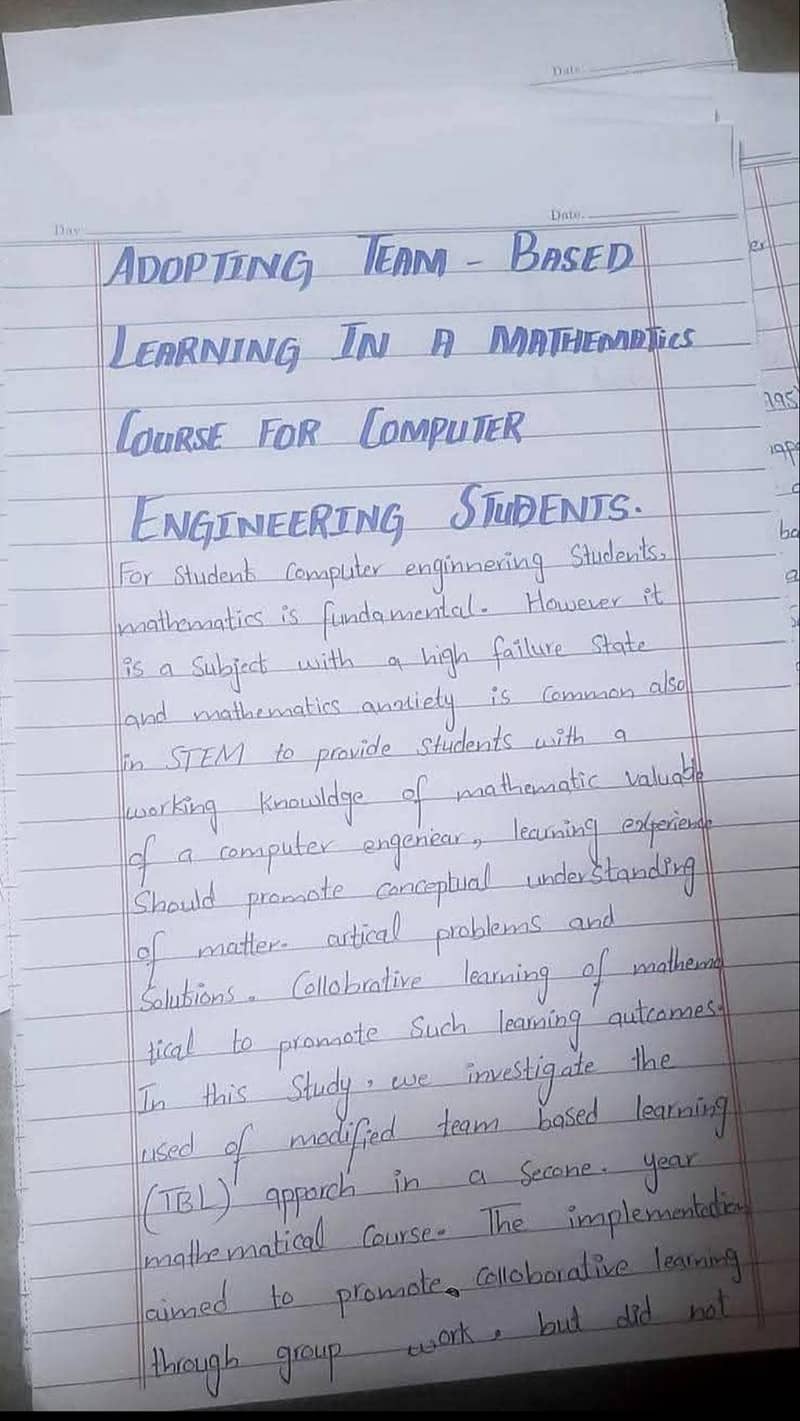 Date.
Day
Date.
ADOPTING TEAM - BASED
LEARNING IN A MATHEMATICS
COURSE FOR COMPUTER
ENGINEERING STUDENTS.
For Student Computer enginnering Students,
mathematics is fundamental. However it
is a Subject with a high failure State
and mathematics anxiety is Common also
in STEM to provide Students with a
working knowldge of mathematic valuable
of a computer engeniear, learning experience
Should promote conceptual understanding
of matter. artical problems and
Solutions. Collobrative learning of mathema
tical to promote Such learning autcomes.
In this Study, we investigate the
used of modified team based learning
(TBL) apporch in a Secone. year
mathematical Course. The implementation
aimed to promote. Colloborative learning
through group work, but did not